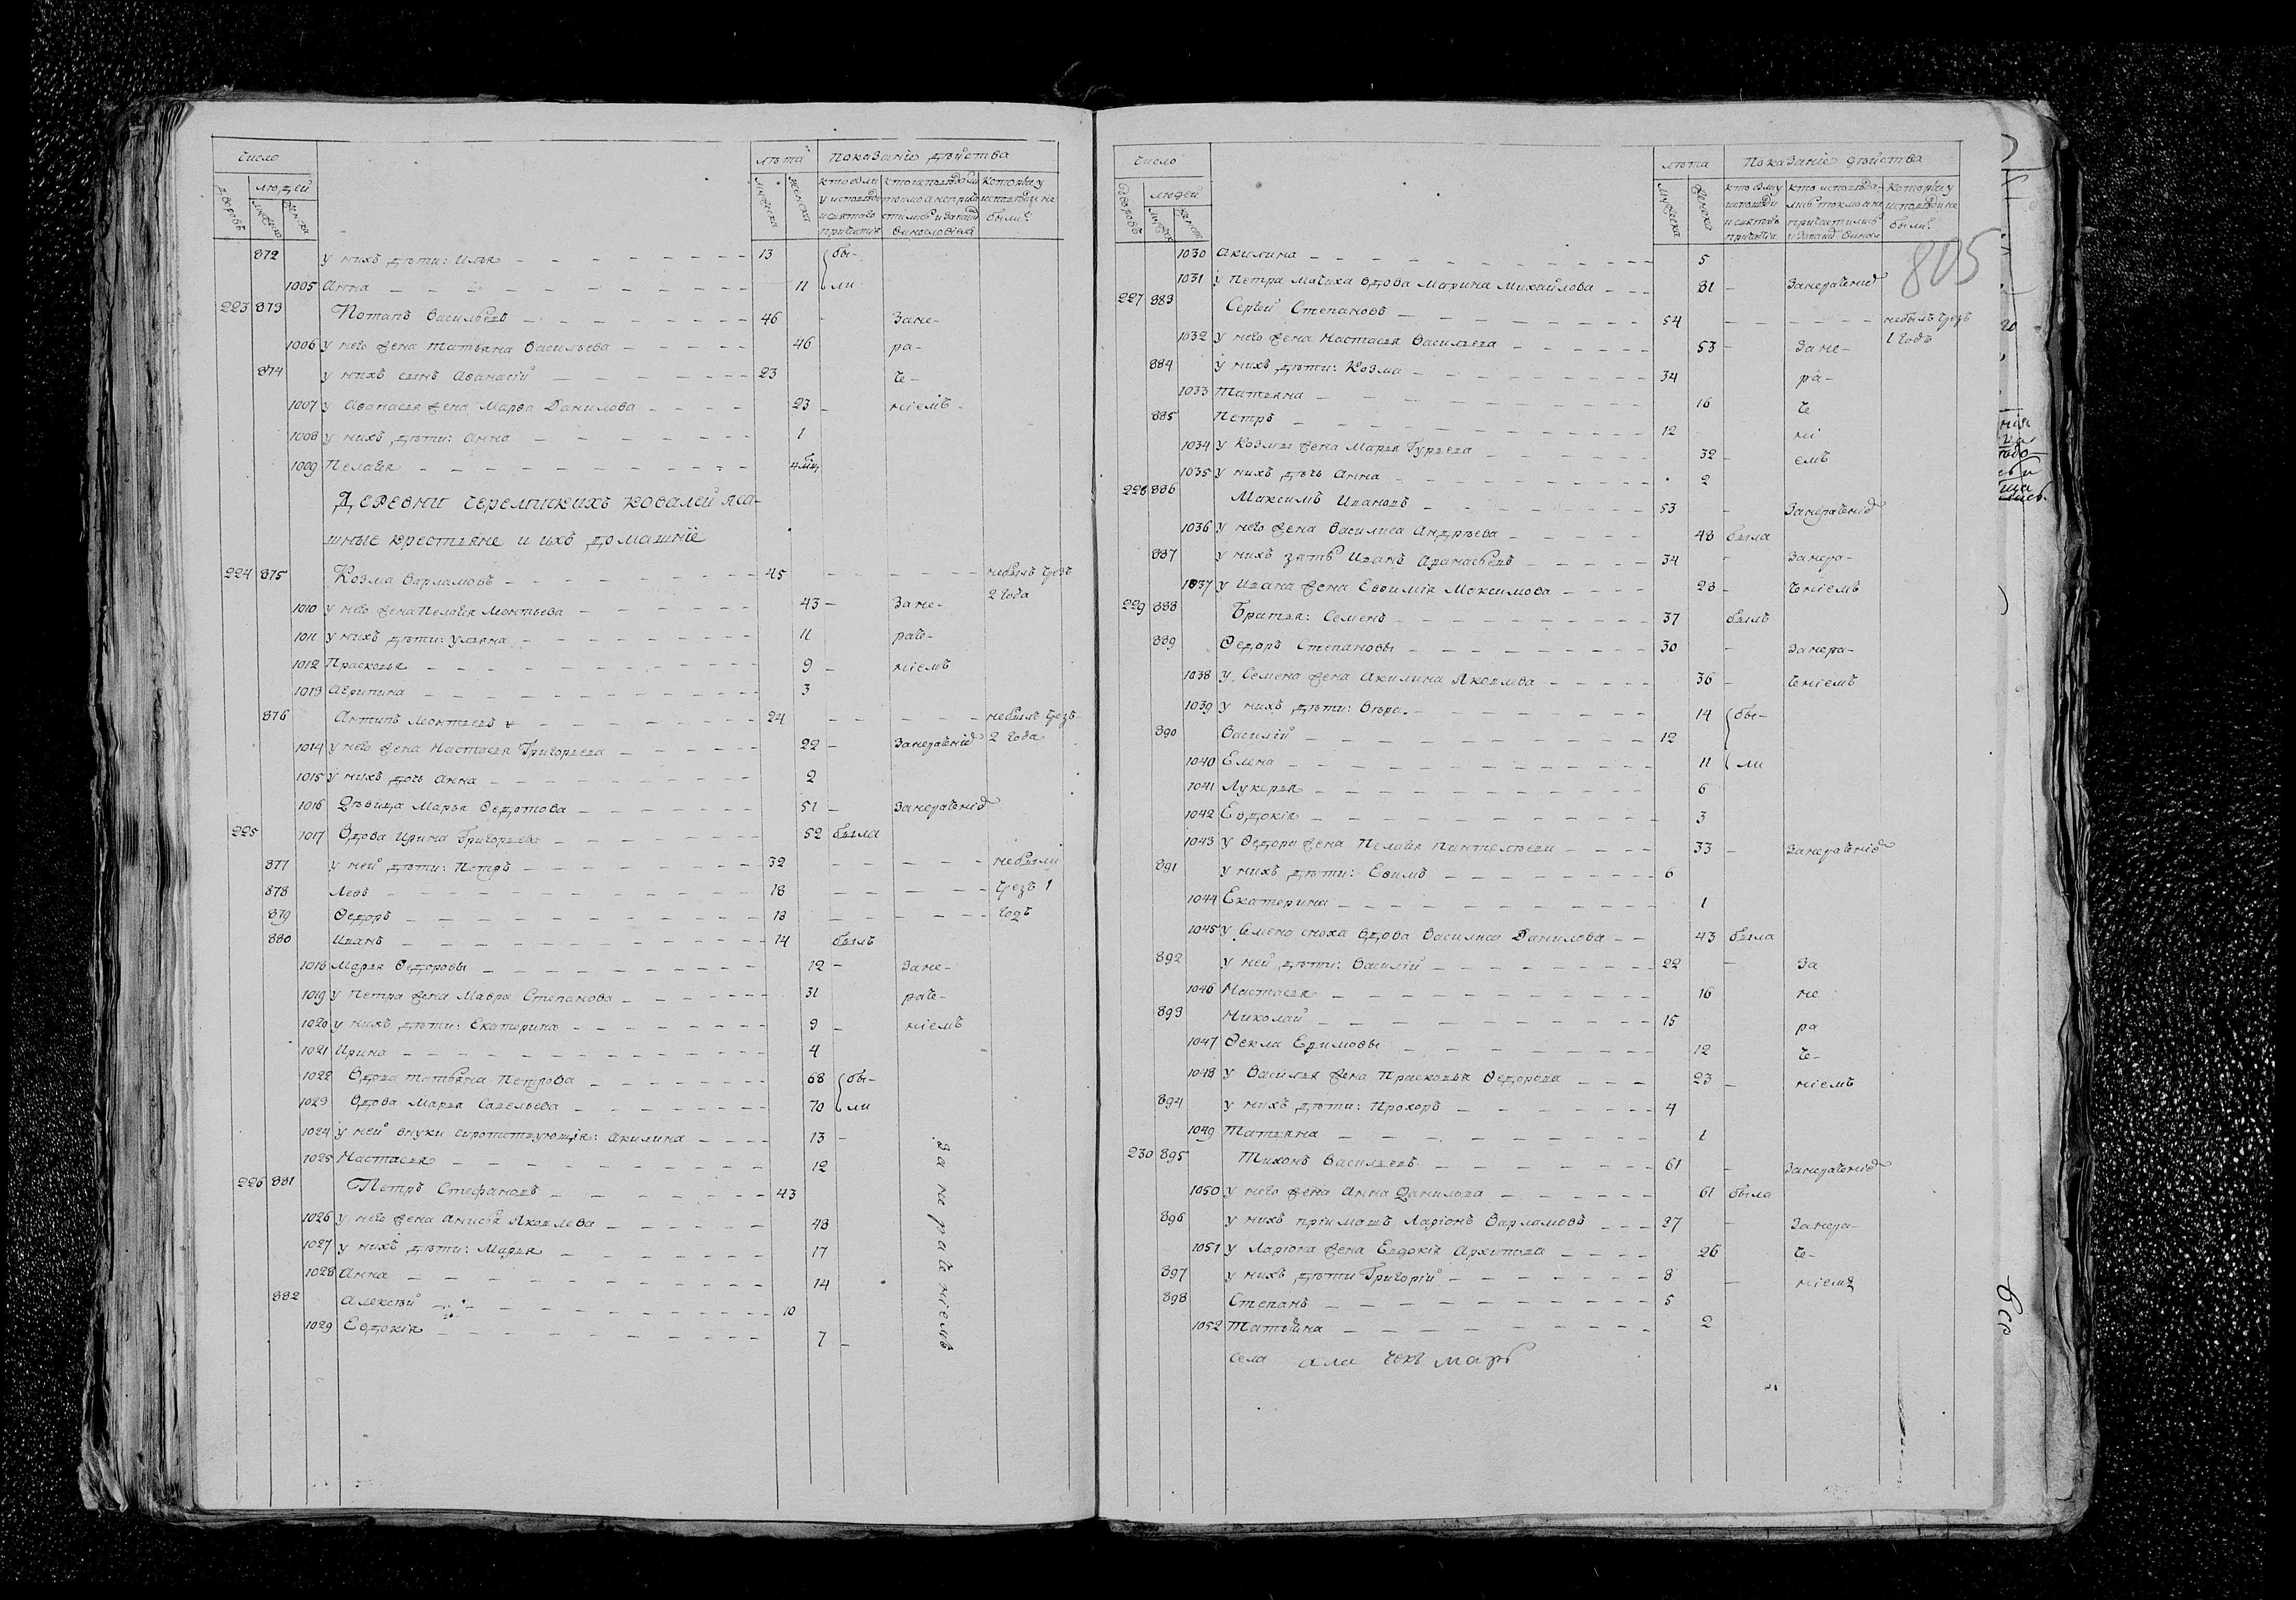 число лѣта показаніе дѣйства
дворовъ людей мужеска женска мужеска женска
872 у нихъ дѣти: Илья 13 бы-
1005 Анна 11 ли
223 873 Потапъ Васильевъ 46 Зане-
1006 у него жена Татьяна Васильева 46 ра-
874 у нихъ сынъ Аѳанасій 23 че-
1007 у Аѳанасья жена Марѳа Данилова 23 ніемъ
1008 у нихъ дѣти: Анна 1
1009 Пелагея 4
Деревни Черемискихъ Ковалей яса-
шные крестьяне и ихъ домашніе
224 875 Козма Варламовъ 45 небылъ чрезъ
2 года
1010 у него жена Пелагея Леонтьева 43 Зане-
1011 у нихъ дѣти: Ульяна 11 раче-
1012 Прасковья 9 ніемъ
1013 Агрипина 3
876 Антипъ Леонтьевъ 24 небылъ чрезъ
1014 у него жена Настасья Григорьева 22 Занераченіе 2 года
1015 у нихъ дочь Анна 2
1016 Дѣвица Марья Ѳедотова 51 Занераченіе
225 1017 Вдова Ирина Григорьева 52 была
877 у ней дѣти: Петръ 32 небыли
878 Левъ 18 чрезъ 1
879 Ѳедоръ 18 годъ
880 Иванъ 14 былъ
1018 Марья Ѳедоровы 12 Зане-
1019 у Петра жена Мавра Степанова 31 раче-
1020 у нихъ дѣти: Екатерина 9 ніемъ
1021 Ирина 4
1022 Вдова Татьяна Петрова 68 бы-
1023 Вдова Марья Савельева 70 ли
1024 у ней внуки сиротствующія: Акилина 13
1025 Настасья 12
226 881 Петръ Стефановъ 43
1026 у него жена Анисья Яковлева 48
1027 у нихъ дѣти: Марья 17
1028 Анна 14
882 Алексѣй 10
1029 Евдокія 7
Занераченіемъ
число лѣта Показаніе дѣйства
дворовъ людей мужеска женска мужеска женска
805
1030 Акилина 5
1031 у Петра мачиха вдова Марина Михайлова 81 Занераченіе
227 883 Сергей Степановъ 54 небылъ чрезъ
1 годъ
1032 у него жена Настасья Васильева 53 Зане-
884 у нихъ дѣти: Козма 34 ра-
1033 Татьяна 16 че
885 Петръ 12 ні
1034 у Козмы жена Марья Гурьева 32 емъ
1035 у нихъ дочь Анна 2
228 886 Максимъ Ивановъ 53 Занераченіе
1036 у него жена Василиса Андрѣева 48 была
887 у нихъ зять Иванъ Аѳанасьевъ 34 Занера-
1037 у Ивана жена Евѳимія Максимова 28 ченіемъ
229 888 Братья: Семенъ 37 былъ
889 Ѳедоръ Степановы 30 Занера-
1038 у Семена жена Акилина Яковлева 36 ченіемъ
1039 у нихъ дѣти: Вѣра 14 бы-
890 Василій 12
1040 Елена 11 ли
1041 Лукерья 6
1042 Евдокія 3
1043 у Ѳедора жена Пелагея Пантелѣева 33 Занераченіе
891 у нихъ дѣти: Еѳимъ 6
1044 Екатерина 1
1045 у Семена сноха вдова Василиса Данилова 43 была
892 у ней дѣти: Василій 22 За
1046 Настасья 16 не
893 Николай 15 ра
1047 Ѳекла Еѳимовы 12 че-
1048 у Василья жена Прасковья Ѳедорова 23 ніемъ
894 у нихъ дѣти: Прохоръ 4
1049 Татьяна 1
230 895 Тихонъ Васильевъ 61 Занераченіе
1050 у него жена Анна Данилова 61 была
896 у нихъ пріимышъ Ларіонъ Варламовъ 27 Занера-
1051 у Ларіона жена Евдокія Архипова 26 че-
897 у нихъ дѣти Григорій 8 ніемъ
898 Степанъ 5
1052 Татьяна 2
села